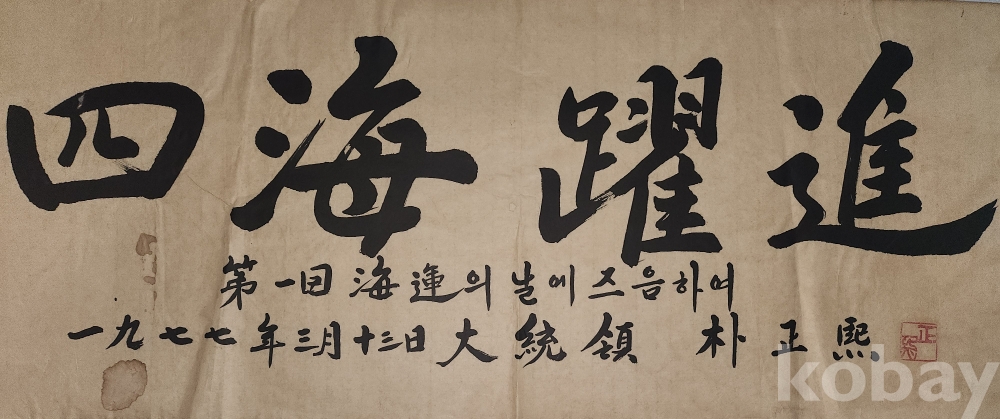 四海躍進
第一回 海運의 날에 즈음하여
一九七七年三月十三日 大統領 朴正熙
正熙
kobay